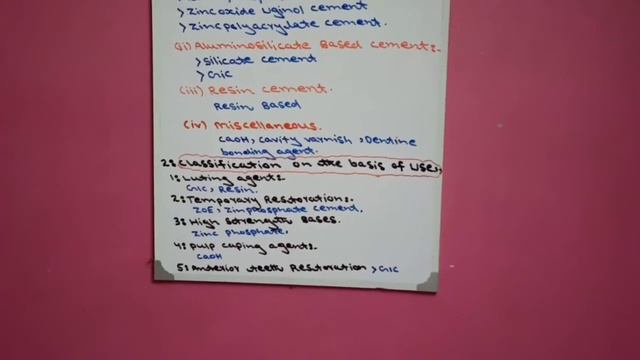 > Zinc oxide Uginol cement
> Zinc polyacrylate cement.
(ii) Aluminosilicate Based cement:-
> Silicate cement
> GIC
(iii) Resin cement.
Resin Based
(iv) Miscellaneous.
CaOH, cavity varnish, Dentine
bonding agent.
2: Classification on the basis of Use:,
1: Luting agent:-
GIC, Resin.
2: Temporary Restoration:-
ZOE, Zinc phosphate cement.
3: High Strength Bases.
Zinc phosphate.
4: pulp caping agents.
CaOH
5: Anterior teeth Restoration > GIC